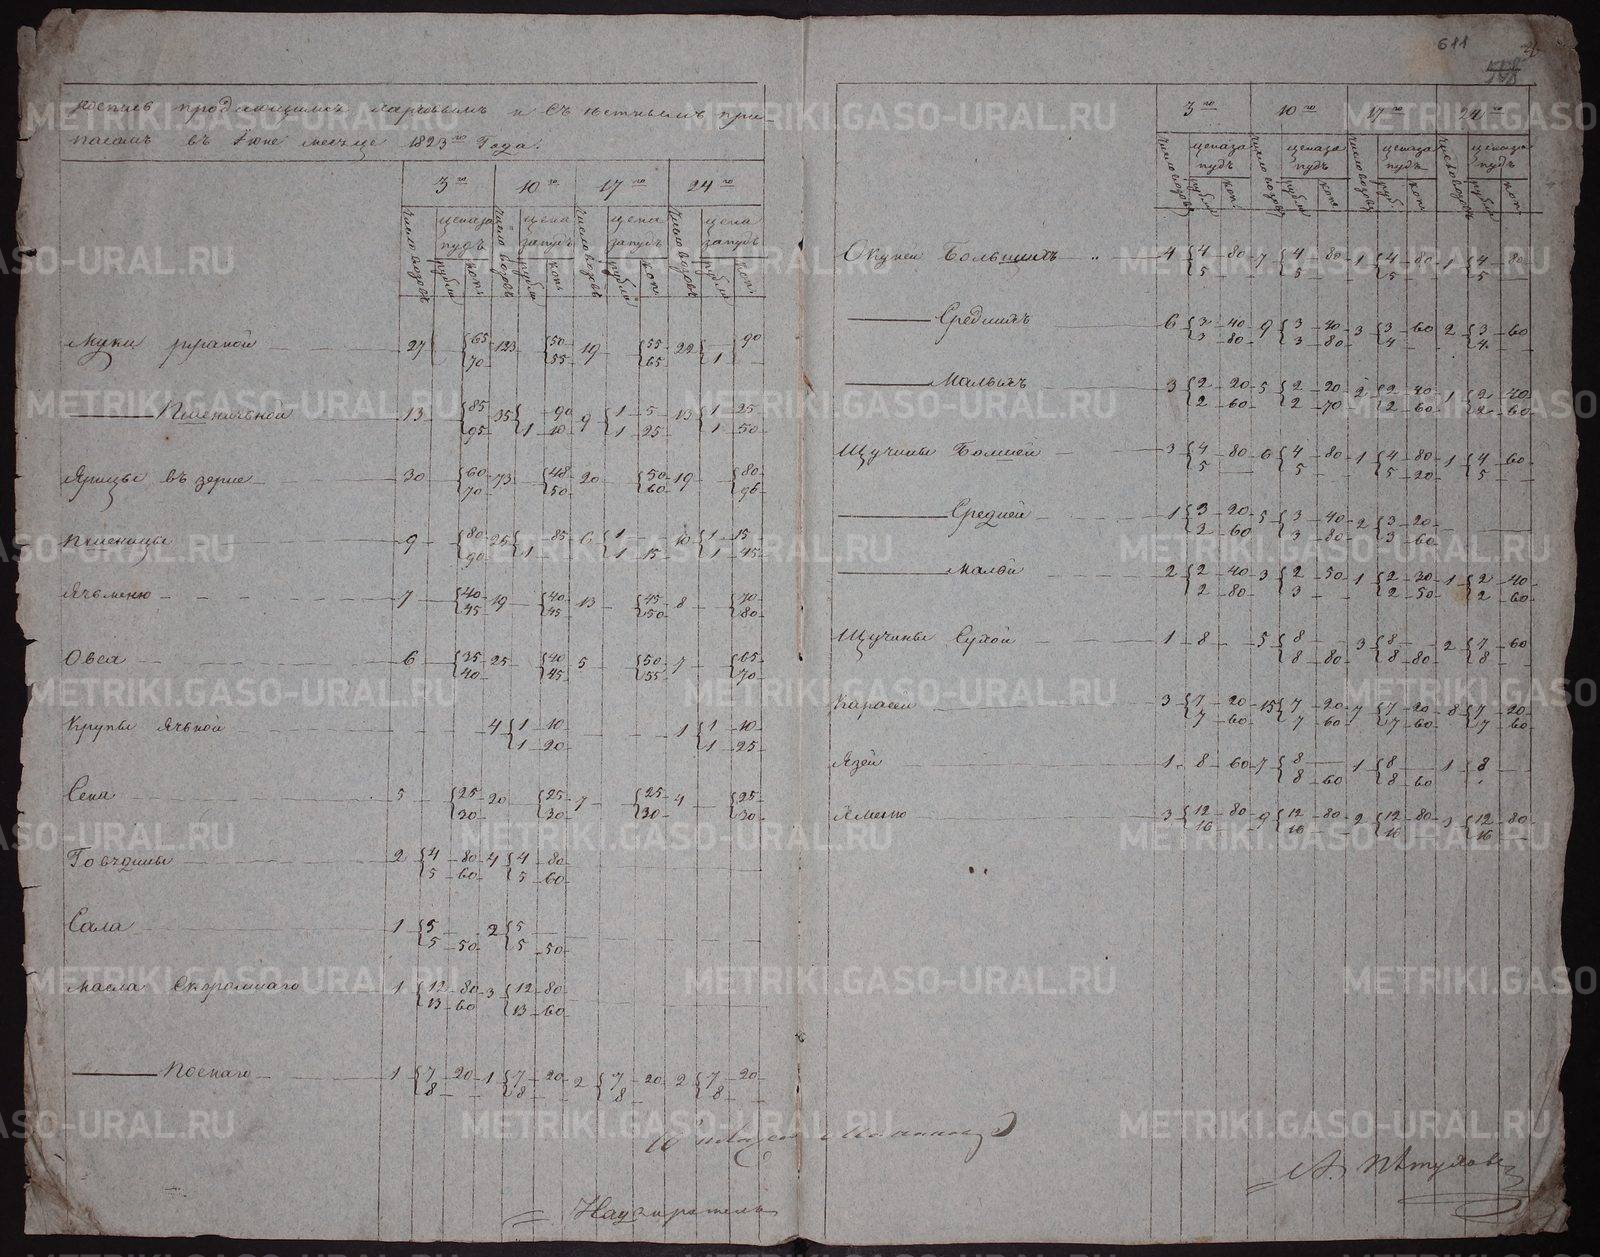 роспись продающимъ харчевымъ и съестнымъ при
пасамъ въ Июне месяце 1823го Года.
3го 10го 17го 24го
число возовъ цена за пудъ число возовъ цена за пудъ число возовъ цена за пудъ число возовъ цена за пудъ
рубли коп. рубли коп. рубли коп. рубли коп.
Муки ржаной 27 65 123 50 19 55 22 90
70 55 65 1
Пшенишной 13 85 35 90 9 1 5 13 1 25
95 1 10 1 25 1 50
Ярицы въ зерне 30 60 73 48 20 50 19 80
70 50 60 90
Пшеницы 9 80 25 85 6 1 10 1 15
90 1 1 15 1 45
Ячьменю 7 40 19 40 13 45 8 70
45 45 50 80
Овса 6 35 25 40 5 50 7 65
40 45 55 70
Крупы Ячьной 4 1 10 1 1 10
1 20 1 25
Сена 5 25 20 25 7 25 4 25
30 30 30 30
Говядины 2 4 80 4 4 80
5 60 5 60
Сала 1 5 2 5
5 50 5 50
Масла Скоромнаго 1 12 80 3 12 80
13 60 13 60
Поснаго 1 7 20 1 7 20 2 7 20 2 7 20
8 8 8 8
Надзиратель
611
3го 10го 17го 24го
число возовъ цена за пудъ число возовъ цена за пудъ число возовъ цена за пудъ число возовъ цена за пудъ
рубли коп. рубли коп. рубл. коп. рубли коп.
Окуней Большихъ 4 4 80 7 4 80 1 4 80 1 4 80
5 5 5 5
Среднихъ 6 3 40 9 3 20 3 3 60 2 3 60
3 80 3 80 4 4
Малыхъ 3 2 20 5 2 20 2 2 40 1 2 40
2 60 2 70 2 60 2 60
Щучины Болшей 3 4 80 6 4 80 1 4 80 1 4 60
5 5 5 20 5
Средней 1 3 20 5 3 40 2 3 20
3 60 3 80 3 60
Малой 2 2 40 3 2 50 1 2 30 1 2 40
2 80 3 2 50 2 60
Щучины Сухой 1 8 5 8 3 8 2 7 60
8 80 8 80 8
Карасей 3 7 20 15 7 20 7 7 20 8 7 20
7 60 7 60 7 60 7 60
Язей 1 8 60 7 8 1 8 1 8
8 60 8 60
3 12 80 9 12 80 2 12 80 3 12 80
16 16 16 16
А. Пѣтухов
METRIKI.GASO-URAL.RU